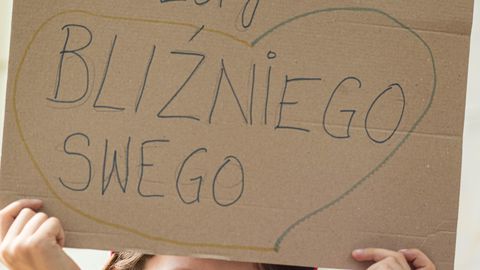 BLIŹNIEGO
SWEGO